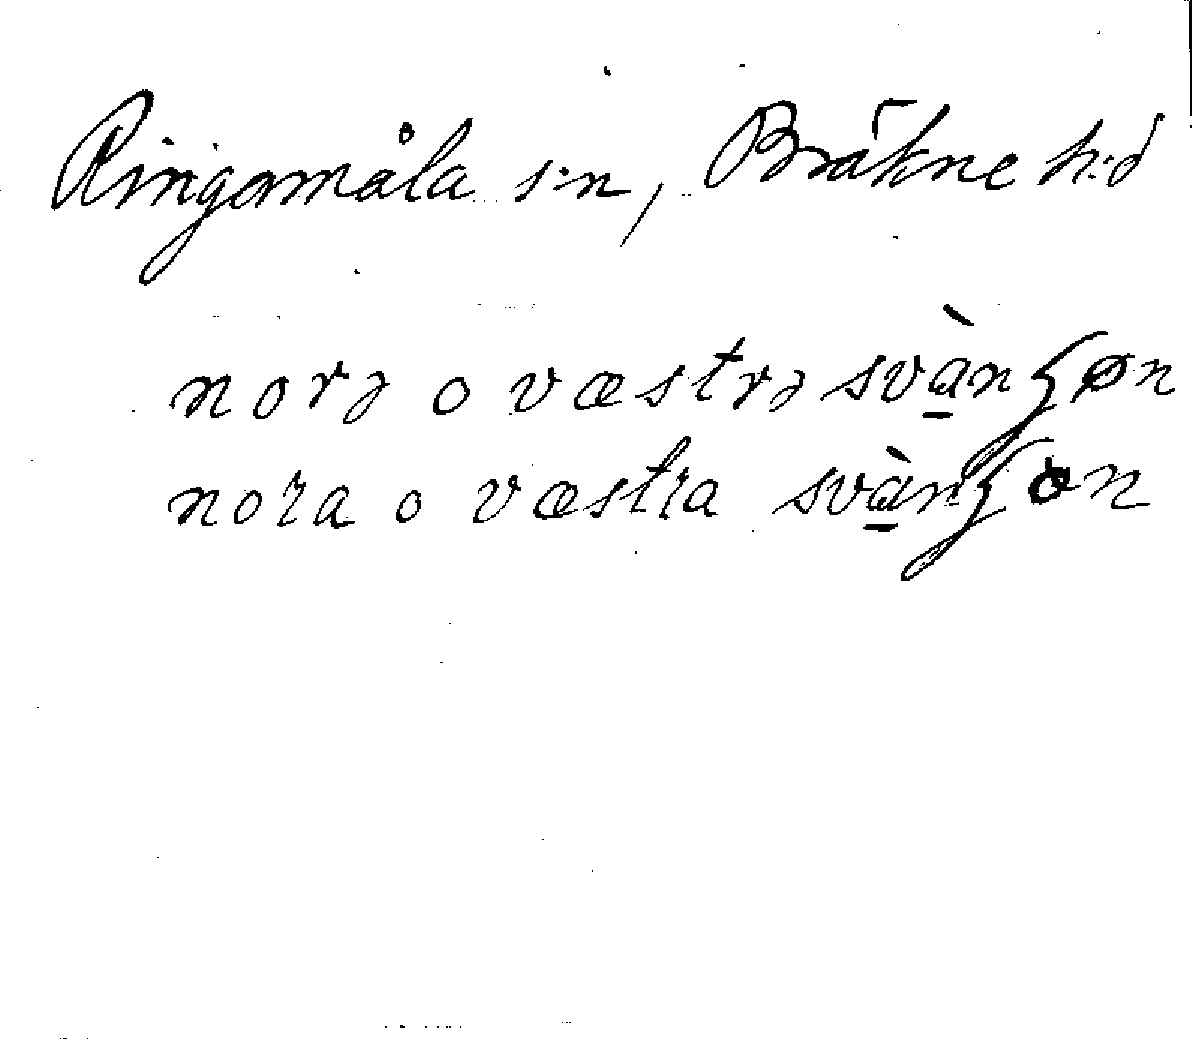 Ringamåla s:n, Bräkne h:d
norə o væstrə svàngøn
nora o væstra svàngon